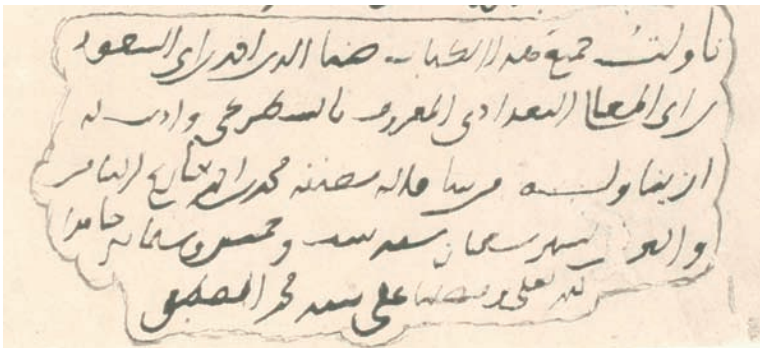 ناولت جميع هذا الكتاب ضيا الدين احمد بن ابى السعود
بن ابى المعالى البغدادى المعروف بالسطرنجى واذنت له
ان يناوله من شا قاله مصنفه محمد بن بتاريخ الثامن
والعشرين شعبان سنه وخمسين وستمايه حامدا
لله تعلى ومصليا على سيده محمد المصطفى